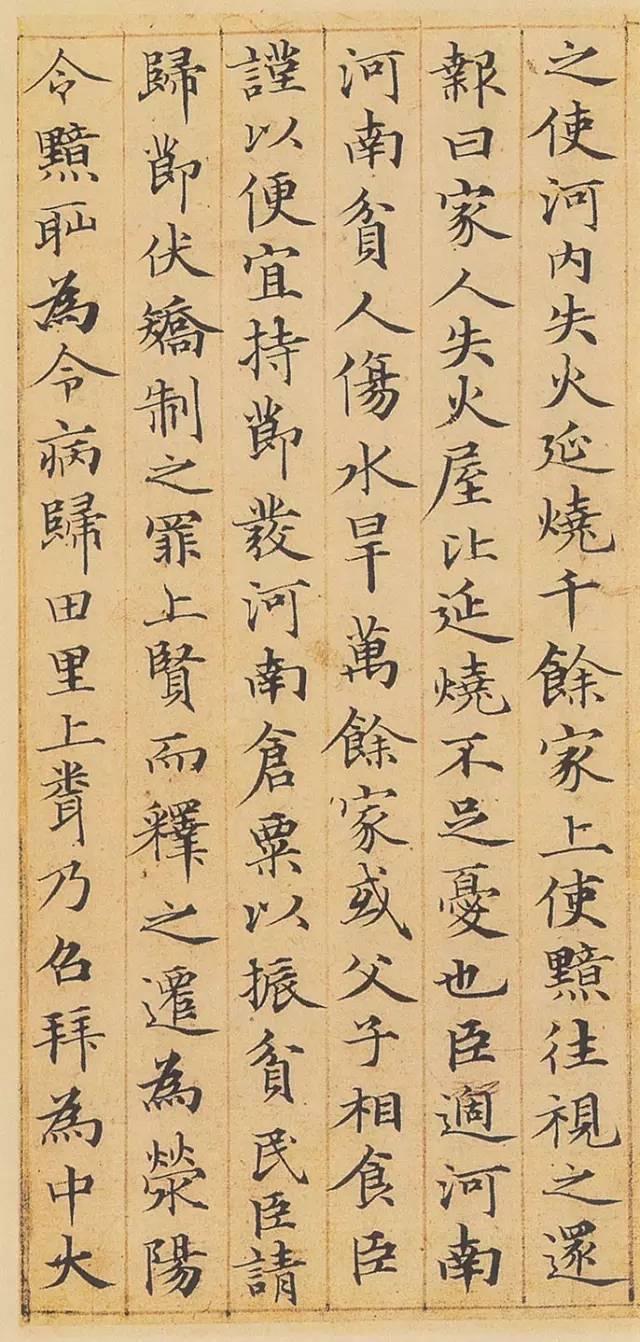 之使河內失火延燒千餘家上使黯往視之還
報曰家人失火屋比延燒不足憂也臣過河南
河南貧人傷水旱萬餘家或父子相食臣
謹以便宜持節發河南倉粟以振貧民臣請
歸節伏矯制之罪上賢而釋之遷為滎陽
令黯恥為令病歸田里上聞乃召拜為中大